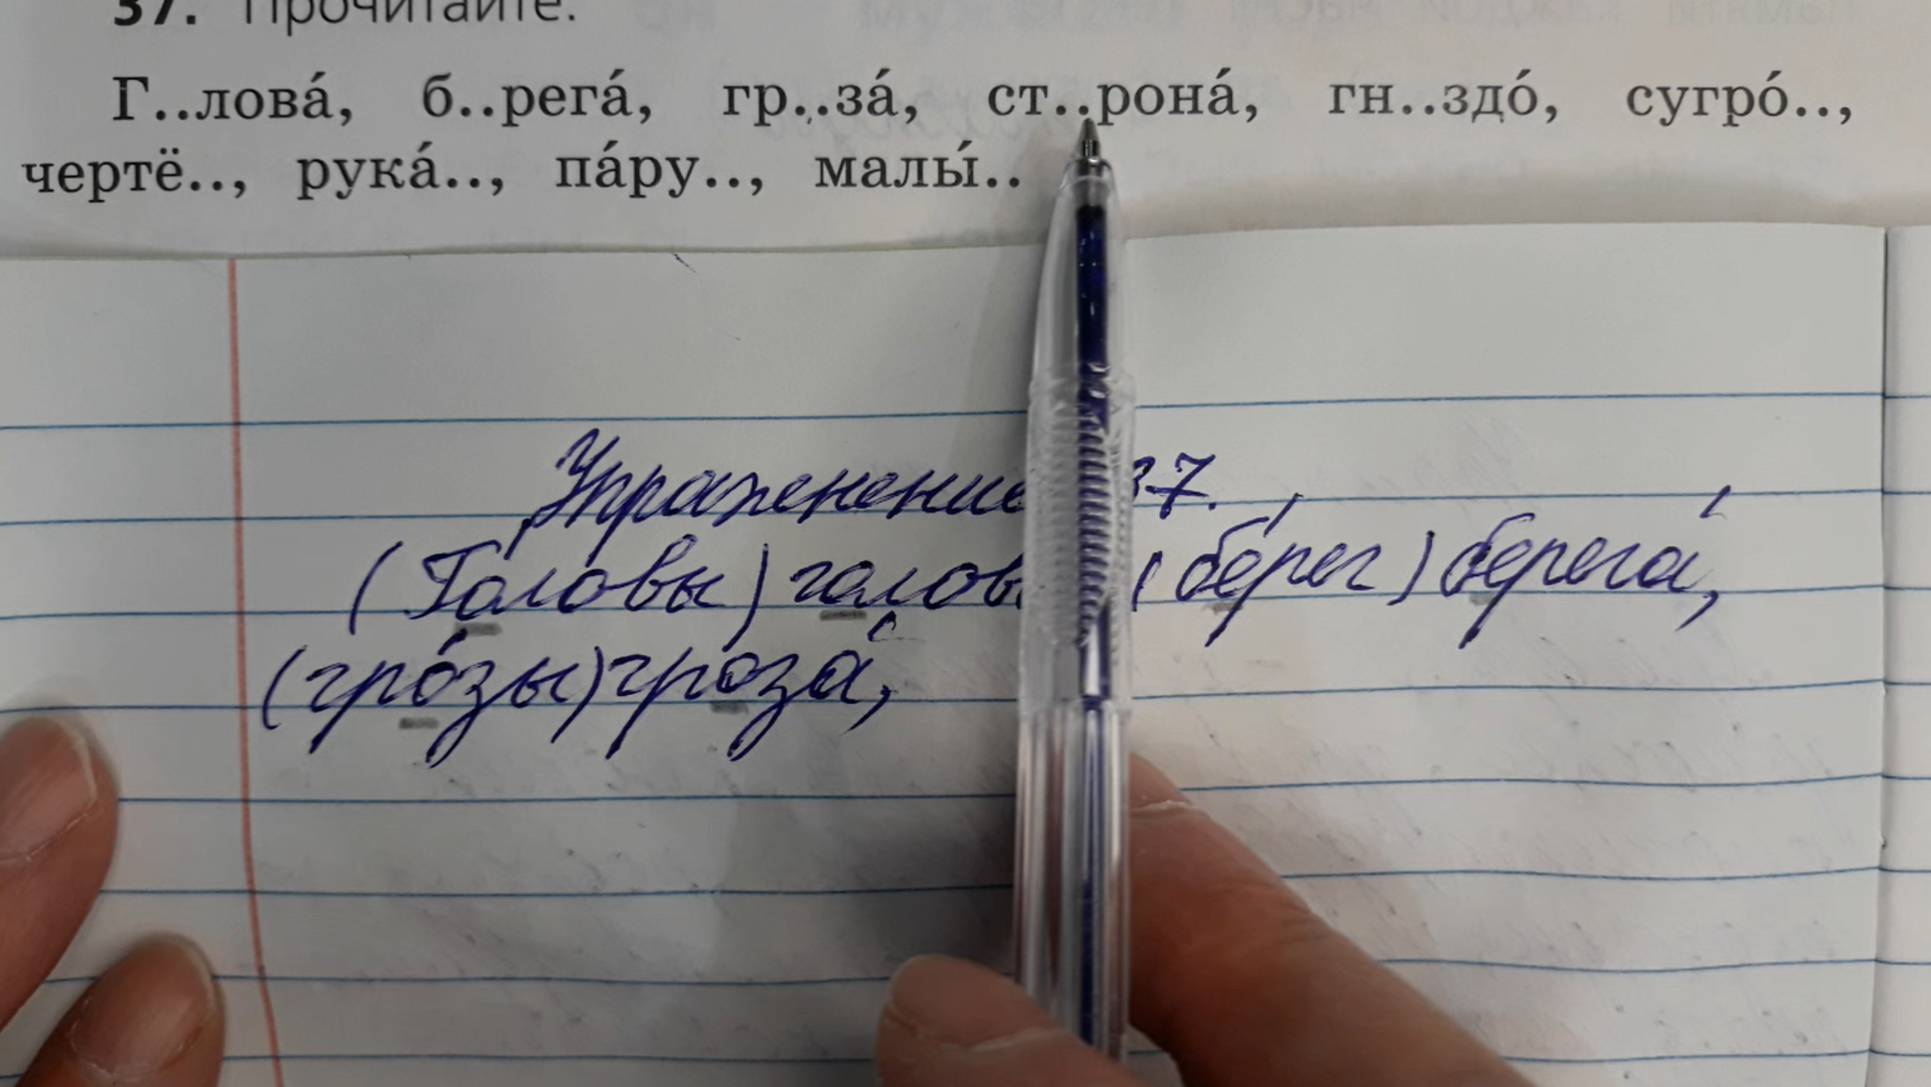 37. Прочитайте.
Г..лова́, б..рега́, гр..за́, ст..рона́, гн..здо́, сугро́..,
чертё.., рука́.., па́ру.., малы́..
Упражнение 37.
(Го́ловы) голов (бе́рег) берега́,
(гро́зы) гроза́,